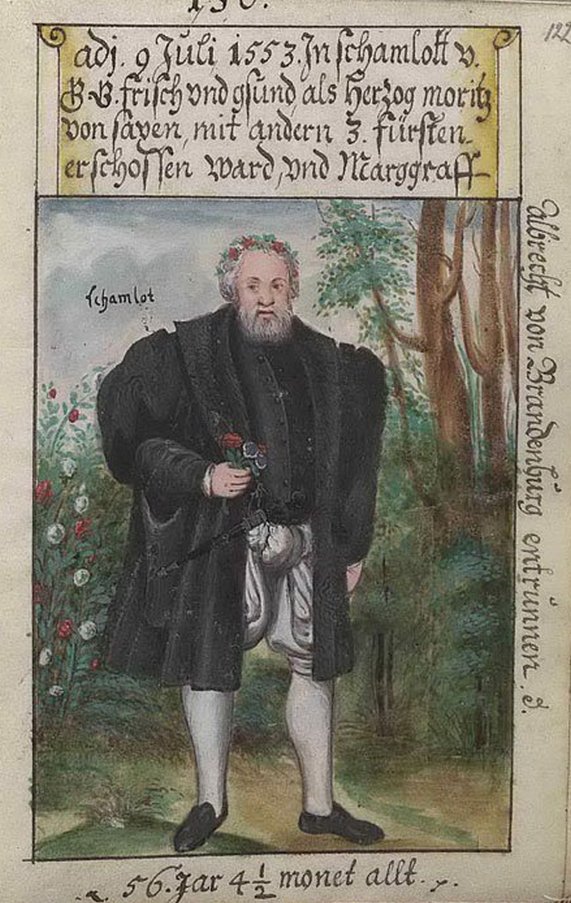 130.
122
adj. 9 Juli 1553. In schamlott v.
G. G. frisch vnd gsund als Herzog moritz
von saxen, mit andern 3. fürsten
erschossen ward, vnd Marggraff
Albrecht von Brandenburg entrünnen.
schamlot
56. Jar 4 1/2 monet allt.